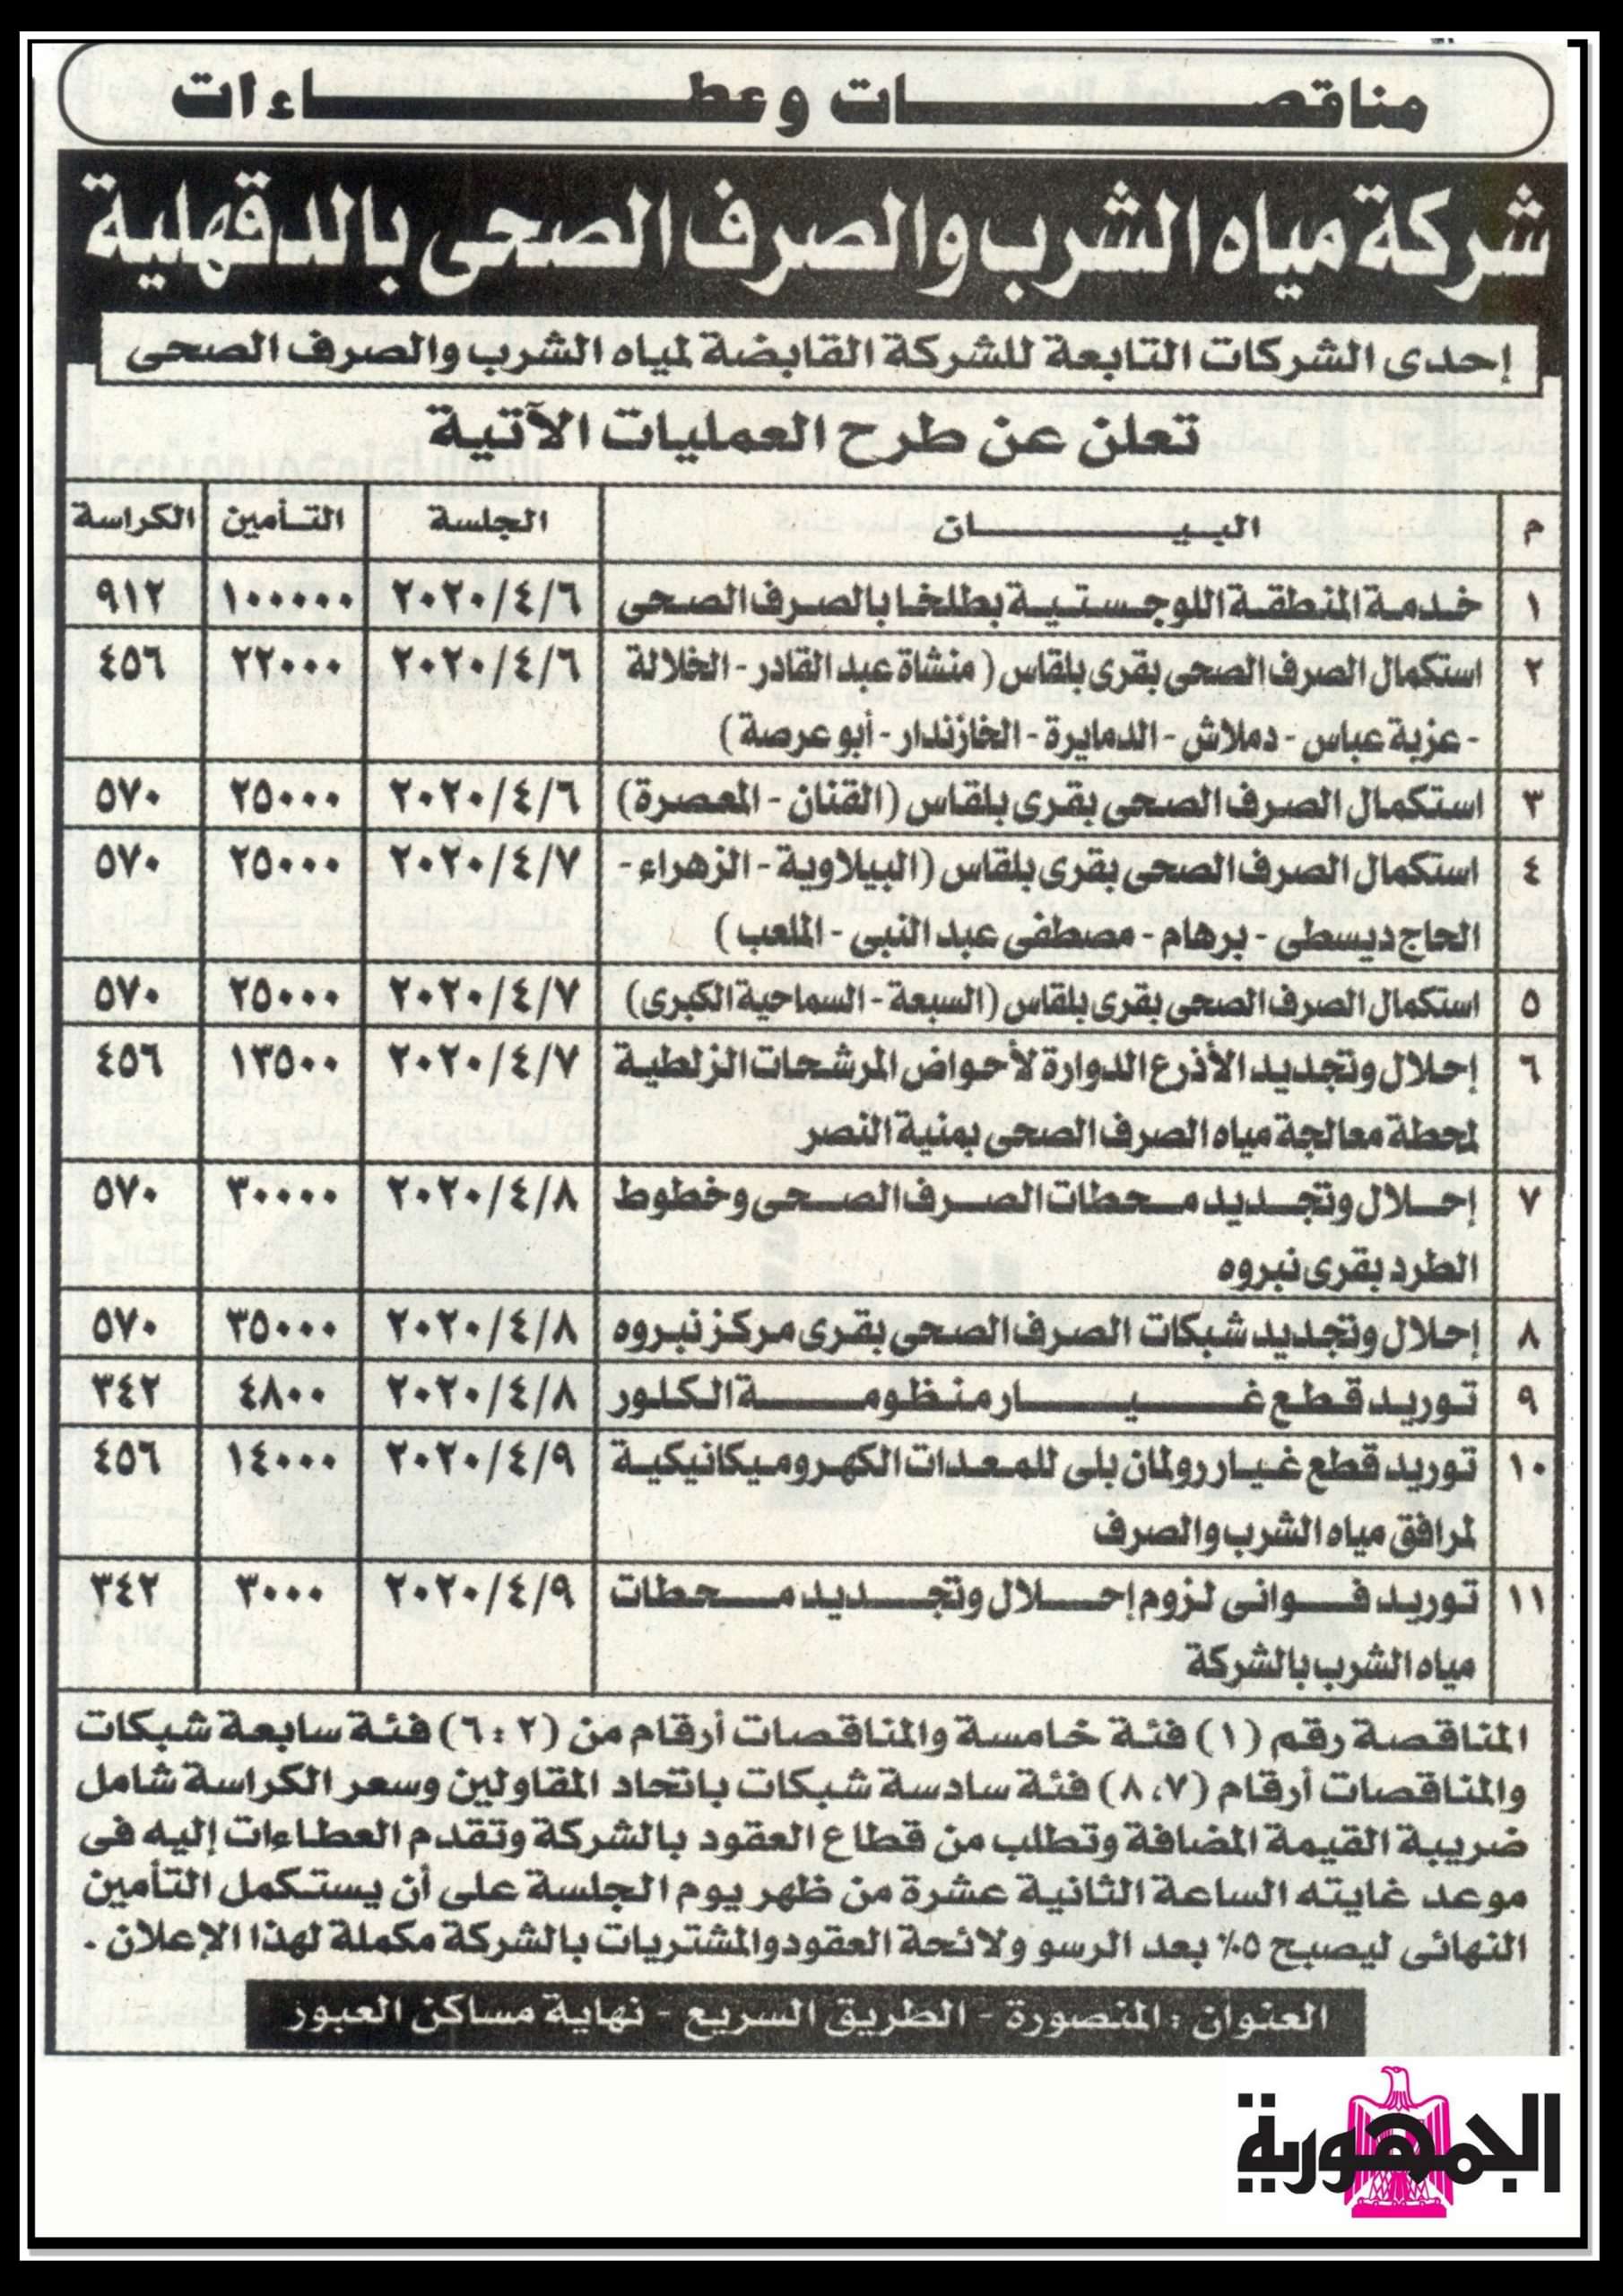 مناقصات وعطاءات
شركة مياه الشرب والصرف الصحى بالدقهلية
إحدى الشركات التابعة للشركة القابضة لمياه الشرب والصرف الصحى
تعلن عن طرح العمليات الآتية
م البيان الجلسة التأمين الكراسة
١ خدمة المنطقة اللوجستية بطلخا بالصرف الصحى ٢٠٢٠/٤/٦ ١٠٠٠٠٠ ٩١٢
٢ استكمال الصرف الصحى بقرى بلقاس ( منشاة عبد القادر - الخلالة ٢٠٢٠/٤/٦ ٢٢٠٠٠ ٤٥٦
- عزبة عباس - دملاش - الدمايرة - الخازندار - أبو عرصة )
٣ استكمال الصرف الصحى بقرى بلقاس (القنان - المعصرة) ٢٠٢٠/٤/٦ ٢٥٠٠٠ ٥٧٠
٤ استكمال الصرف الصحى بقرى بلقاس (البيلاوية - الزهراء - ٢٠٢٠/٤/٧ ٢٥٠٠٠ ٥٧٠
الحاج ديسطى - برهام - مصطفى عبد النبى - الملعب )
٥ استكمال الصرف الصحى بقرى بلقاس (السبعة - السماحية الكبرى) ٢٠٢٠/٤/٧ ٢٥٠٠٠ ٥٧٠
٦ إحلال وتجديد الأذرع الدوارة لأحواض المرشحات الزلطية ٢٠٢٠/٤/٧ ١٣٥٠٠ ٤٥٦
لمحطة معالجة مياه الصرف الصحى بمنية النصر
٧ إحلال وتجديد محطات الصرف الصحى وخطوط ٢٠٢٠/٤/٨ ٣٠٠٠٠ ٥٧٠
الطرد بقرى نبروه
٨ إحلال وتجديد شبكات الصرف الصحى بقرى مركز نبروه ٢٠٢٠/٤/٨ ٣٥٠٠٠ ٥٧٠
٩ توريد قطع غيار منظومة الكلور ٢٠٢٠/٤/٨ ٤٨٠٠ ٣٤٢
١٠ توريد قطع غيار رولمان بلى للمعدات الكهروميكانيكية ٢٠٢٠/٤/٩ ١٤٠٠٠ ٤٥٦
لمرافق مياه الشرب والصرف
١١ توريد فوانى لزوم إحلال وتجديد محطات ٢٠٢٠/٤/٩ ٣٠٠٠ ٣٤٢
مياه الشرب بالشركة
المناقصة رقم (١) فئة خامسة والمناقصات أرقام من (٢ : ٦) فئة سابعة شبكات
والمناقصات أرقام (٧، ٨) فئة سادسة شبكات باتحاد المقاولين وسعر الكراسة شامل
ضريبة القيمة المضافة وتطلب من قطاع العقود بالشركة وتقدم العطاءات إليه فى
موعد غايته الساعة الثانية عشرة من ظهر يوم الجلسة على أن يستكمل التأمين
النهائى ليصبح ٥٪ بعد الرسو ولائحة العقود والمشتريات بالشركة مكملة لهذا الإعلان .
العنوان : المنصورة - الطريق السريع - نهاية مساكن العبور
الجمهورية